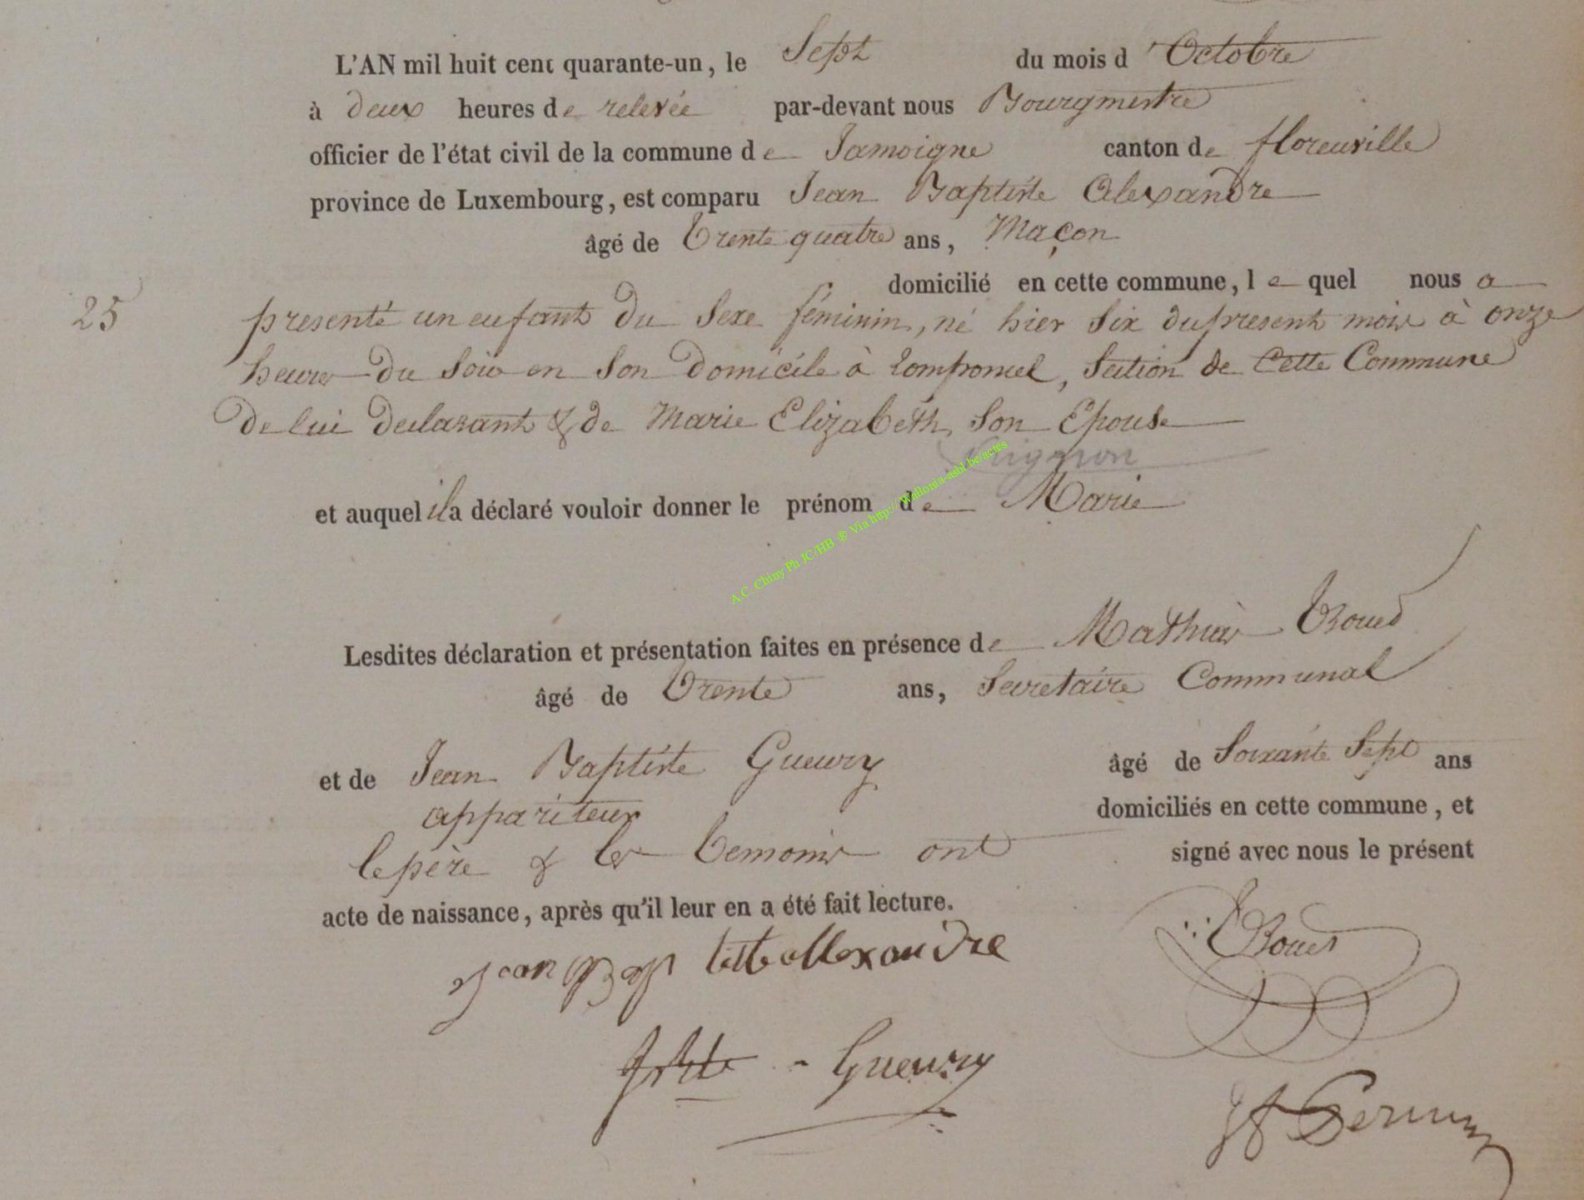 L'AN mil huit cent quarante-un, le Sept du mois d'Octobre
à deux heures de relevée par-devant nous Bourgmestre
officier de l'état civil de la commune de Jamoigne canton de florenville
province de Luxembourg, est comparu Jean Baptiste Alexandre
âgé de trente quatre ans, Maçon
domicilié en cette commune, le quel nous a
25 presenté un enfant du Sexe féminin, né hier Six du present mois à onze
heures du Soir en Son domicile à Romponcel, Section de Cette Commune
de lui declarant & de Marie Elizabeth Son Epouse
et auquel il a déclaré vouloir donner le prénom de Marie
A.C. Chiny Ph JC/HB ® Via http://Wallonia-asbl.be/actes
Lesdites déclaration et présentation faites en présence de Mathieu
âgé de trente ans, Secretaire Communal
et de Jean Baptiste Gueury âgé de Soixante Sept ans
appariteur domiciliés en cette commune, et
le père & les temoins ont signé avec nous le présent
acte de naissance, après qu'il leur en a été fait lecture.
jean Bap tiste allexandre
Gueury